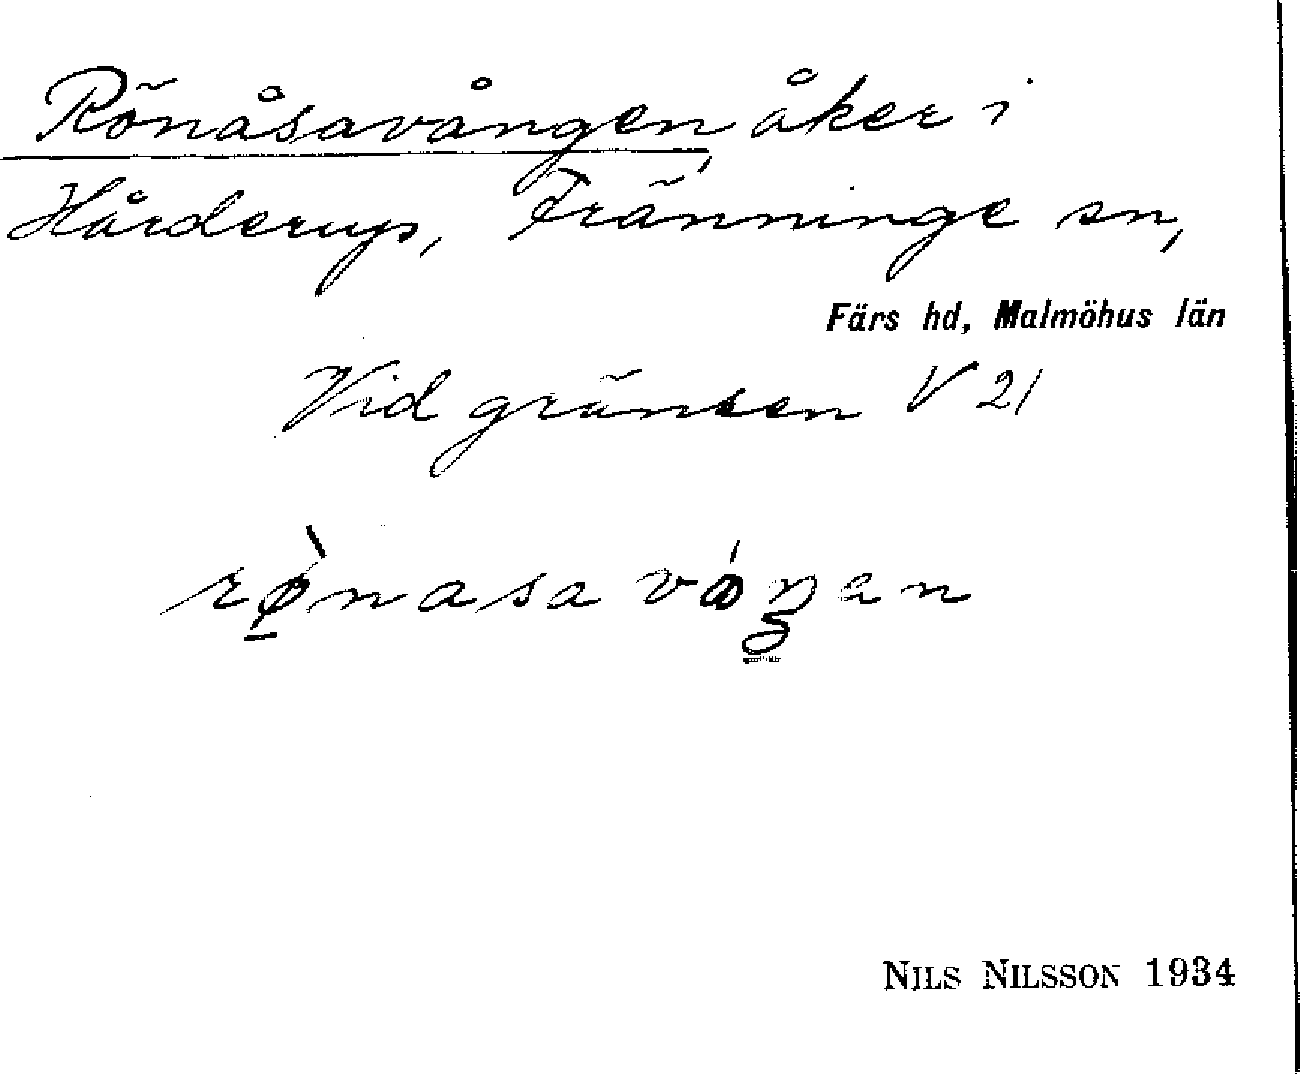 Rönåsavången, åker i
Hårderup, Fränninge sn,
Färs hd, Malmöhus län
Vid gränsen V 21
rø̀nasa váŋan
NILS NILSSON 1934